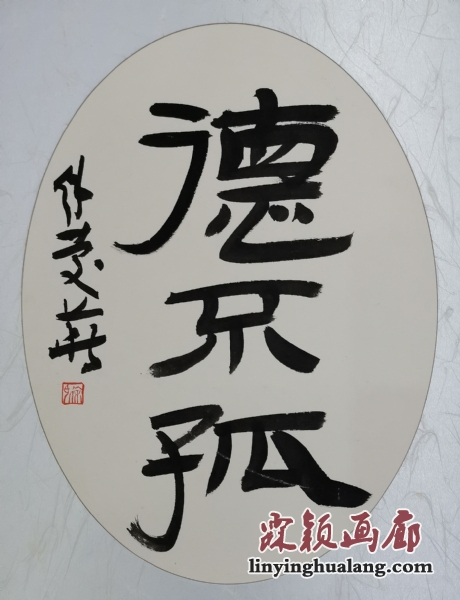 德不孤
霖颖画廊
linyinghualang.com